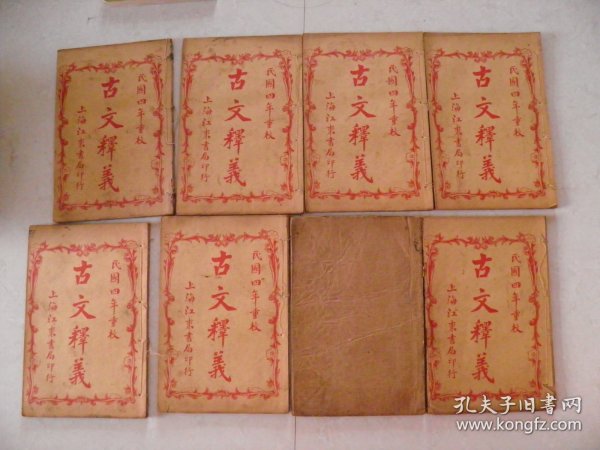 民國四年重校
古文釋義
上海江東書局印行
民國四年重校
古文釋義
上海江東書局印行
民國四年重校
古文釋義
上海江東書局印行
民國四年重校
古文釋義
上海江東書局印行
民國四年重校
古文釋義
上海江東書局印行
民國四年重校
古文釋義
上海江東書局印行
民國四年重校
古文釋義
上海江東書局印行
孔夫子旧書网
www.kongfz.com